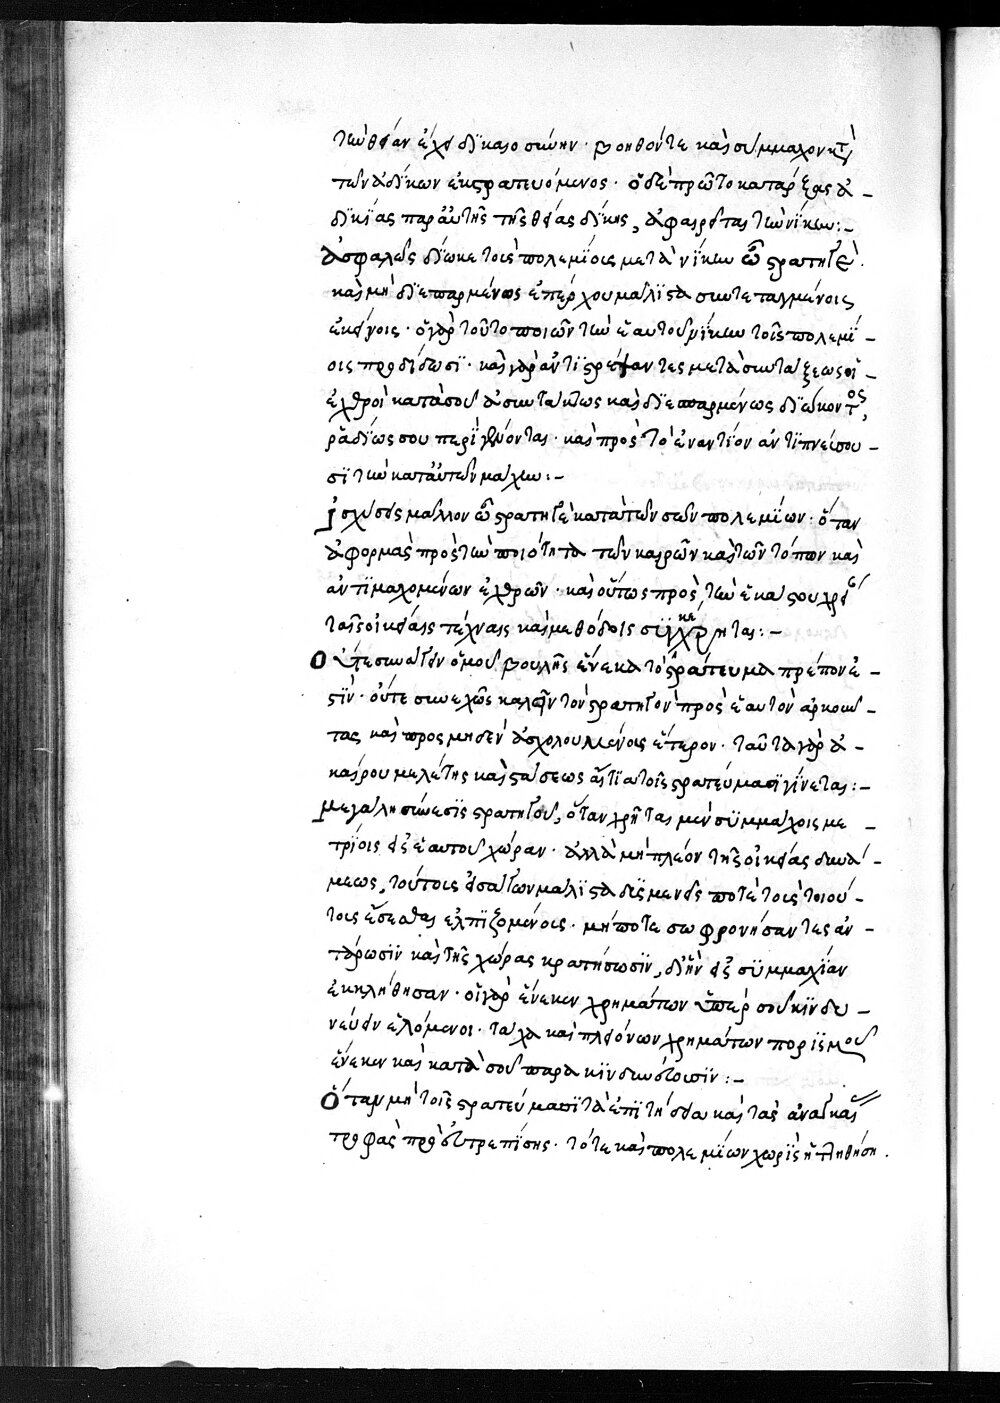 τὴν θείαν ἔχει δικαιοσύνην· βοηθόν τε καὶ σύμμαχον κατὰ
τῶν ἀδίκων ἐκστρατευόμενος· ὁ δὲ πρῶτο κατάρξας ἀ-
δικίας παρ' αὐτῆς τῆς θείας δίκης, ἀφαιρεῖται τὴν νίκην:-
Ἀσφαλῶς δίωκε τοῖς πολεμίοις μετὰ νίκην ὦ στρατηγέ.
καὶ μὴ διεσπαρμένως ἐπέρχου μάλιστα συντεταγμένοις
ἐκείνοις· ὁ γὰρ τοῦτο ποιῶν τὴν ἑαυτοῦ νίκην τοῖς πολεμί-
οις προδίδωσι· καὶ γὰρ ἀντιστρέψαντες μετὰ συντάξεως οἱ
ἐχθροὶ κατὰ σοῦ ἀσυντάκτως καὶ διεσπαρμένως διώκοντος,
ῥᾳδίως σου περιγίνονται· καὶ πρὸς τὸ ἐναντίον ἀντιπνεύσου-
σι τὴν κατ' αὐτῶν μάχην:-
Ἰσχύσεις μᾶλλον ὦ στρατηγὲ κατὰ τῶν σῶν πολεμίων· ὅταν
ἀφορμὰς πρὸς τὴν ποιότητα τῶν καιρῶν καὶ τῶν τόπων καὶ
ἀντιμαχομένων ἐχθρῶν· καὶ οὕτως πρὸς τὴν ἑκάστου χρεί
ταῖς οἰκείαις τέχναις καὶ μεθόδοις συγκέχρηται:-
Οὔτε συνάγειν ὁμοῦ βουλῆς ἕνεκα τὸ στράτευμα πρέπον ἐ-
στιν· οὔτε συνεχῶς καλεῖν τὸν στρατηγὸν πρὸς ἑαυτὸν ἀρκοῦν-
τας καὶ προς μηδὲν ἀσχολουμένοις ἕτερον· ταῦτα γὰρ ἀ-
καίρου μελέτης καὶ στάσεως αἴτια τοῖς στρατεύμασι γίνεται:-
Μεγάλη σύνεσις στρατηγοῦ, ὅταν χρῆται μὲν συμμάχοις με-
τρίοις εἰς ἑαυτοῦ χώραν· ἀλλὰ μὴ πλέον τῆς οἰκείας δυνά-
μεως, τούτοις εἰσάγων μάλιστα δυσμενεῖς ποτὲ τοῖς τοιού-
τοις ἔσεσθαι ἐλπιζομένοις· μήποτε σωφρονήσαντες ἀν-
τάρωσιν καὶ τῆς χώρας κρατήσωσιν, δι' ἣν εἰς συμμαχίαν
ἐκλήθησαν· οἱ γὰρ ἕνεκεν χρημάτων ὑπὲρ σοῦ κινδυ-
νεύειν ἑλόμενοι· τάχα καὶ πλειόνων χρημάτων πορισμοῦ
ἕνεκεν καὶ κατὰ σοῦ παρακινδυνεύσουσιν:-
Ὅταν μὴ τοῖς στρατεύμασι τὰ ἐπιτήδεια καὶ τὰς ἀναγκαίας
τροφὰς προευτρεπίσῃς· τότε καὶ πολεμίων χωρὶς ἡττηθήσῃ.